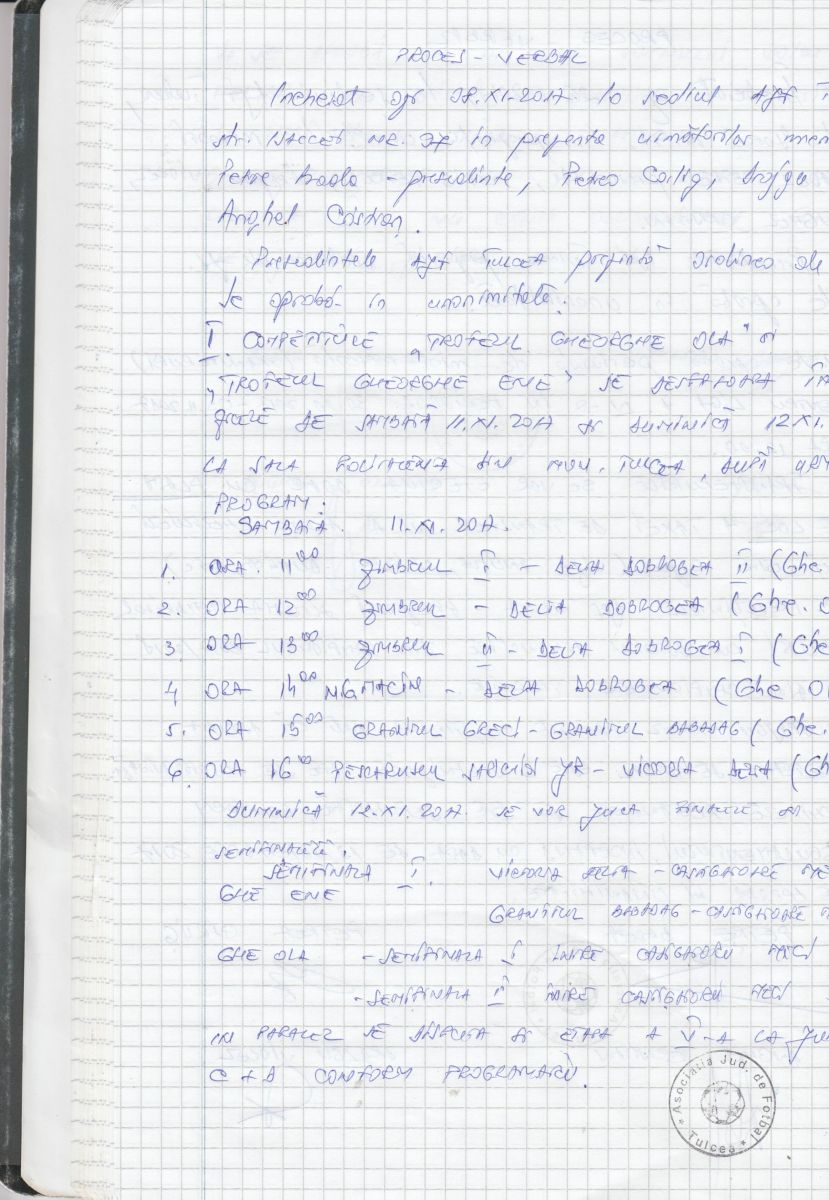 PROCES - VERBAL
Incheiat azi 08.XI.2017 la sediul AJF
str. Isaccei nr. 37 in prezenta urmatorilor mem
Petre Badea - presedinte, Petrea Carlig,
Anghel Cristian.
Presedintele AJF TULCEA prezinta ordinea de
Se aproba in unanimitate.
I. COMPETITIILE "TROFEUL GHEORGHE OLA" si
"TROFEUL GHEORGHE ENE" SE DESFASOARA IN
ZILELE DE SAMBATĂ 11.XI.2017 SI DUMINICĂ 12 XI.
LA SALA POLIVALENTA DIN MUN. TULCEA, DUPĂ URM
PROGRAM:
SAMBATA. 11.XI.2017.
1. ORA. 11⁰⁰ ZIMBRUL I - DELTA DOBROGEA II (Ghe.
2. ORA 12⁰⁰ ZIMBRUL - DELTA DOBROGEA (Ghe. O
3. ORA 13⁰⁰ ZIMBRUL II - DELTA DOBROGEA I (Ghe
4. ORA 14⁰⁰ MACIN - DELTA DOBROGEA (Ghe Ol
5. ORA 15⁰⁰ GRANITUL GRECI - GRANITUL BABADAG (Ghe.
6. ORA 16⁰⁰ PESCARUSUL SARICHIOI JR - VICTORIA DELTA (Gh
DUMINICĂ 12.XI.2017. SE VOR JUCA FINALELE SI
SEMIFINALELE.
SEMIFINALA I. VICTORIA DELTA - CASTIGATOARE ME
GHE ENE
GRANITUL BABADAG - CASTIGATOARE M
GHE OLA - SEMIFINALA I INTRE CASTIGATORII MECI
- SEMIFINALA II INTRE CASTIGATORII MECI
IN PARALEL SE DISPUTA SI ETAPA A V-A LA JU
C + D CONFORM PROGRAMĂRII.
* Asociatia Jud. de Fotbal * Tulcea